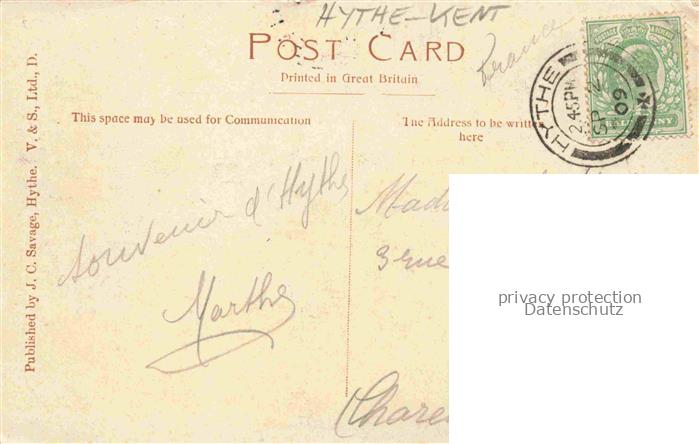 HYTHE-KENT
POST CARD
Printed in Great Britain
France
This space may be used for Communication
The Address to be written
here
HYTHE
2.45PM
SP
09
HALFPENNY
Published by J. C. Savage, Hythe. V. & S., Ltd., D.
Souvenir d'Hythe
Marthe
3 rue
privacy protection
Datenschutz